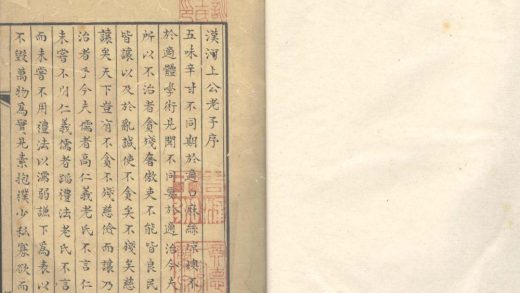 漢河上公老子序
五味辛甘不同期於適口麻絲凉燠不
於適體學術見聞不同要於適治今夫
所以不治者貪殘奢傲吏不能皆良民
皆讓以及於亂誠使不貪矣不殘矣慈
讓矣天下豈有不貪不殘慈儉而讓乃
治者乎今夫儒者高仁義老氏不言仁
未嘗不以仁義儒者蹈禮法老氏不言
而未嘗不用禮法以濡弱謙下為表以
不毀萬物為實見素抱樸少私寡欲而